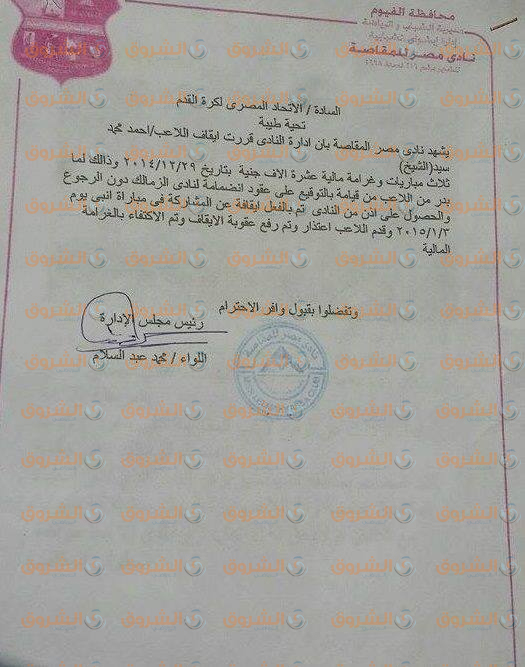 محافظة الفيوم
مديرية الشباب و الرياضة
نادى مصر للمقاصة
السادة / الاتحاد المصرى لكرة القدم
تحية طيبة
يشهد نادى مصر المقاصة بان ادارة النادى قررت ايقاف اللاعب/احمد محمد
سيد(الشيخ)
ثلاث مباريات وغرامة مالية عشرة الاف جنية بتاريخ ٢٠١٤/١٢/٢٩ وذالك لما
بدر من اللاعب من قيامة بالتوقيع على عقود انضمامة لنادى الزمالك دون الرجوع
والحصول على اذن من النادى تم بالفعل ايقافة عن المشاركة فى مباراة انبى يوم
٢٠١٥/١/٣ وقدم اللاعب اعتذار وتم رفع عقوبة الايقاف وتم الاكتفاء بالغرامة
المالية
وتفضلوا بقبول وافر الاحترام
رئيس مجلس الإدارة
اللواء / محمد عبد السلام
الشروق